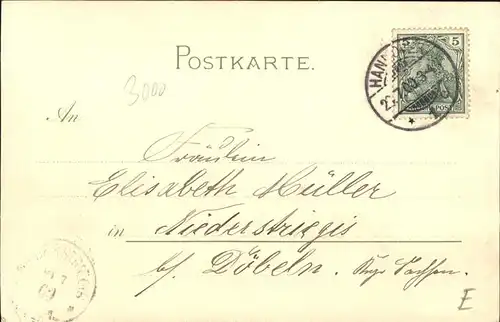 POSTKARTE.
5 5
HANNOVER
3000
An
Fräulein
Elisabeth Müller
in Niederstriegis
b/. Döbeln. Kgr. Sachsen.
E